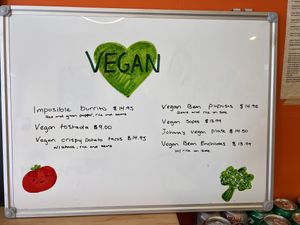 VEGAN
Imposible burrito $14.95
Red and green pepper, rice and beans
Vegan tostada $9.00
Vegan crispy potato tacos $14.95
w/cheese, rice and beans
Vegan Bean pupusas $14.95
Beans and rice on side
Vegan sopes $13.99
Johnny's vegan plate $14.50
Vegan Bean Enchiladas $13.99
w/ rice on side